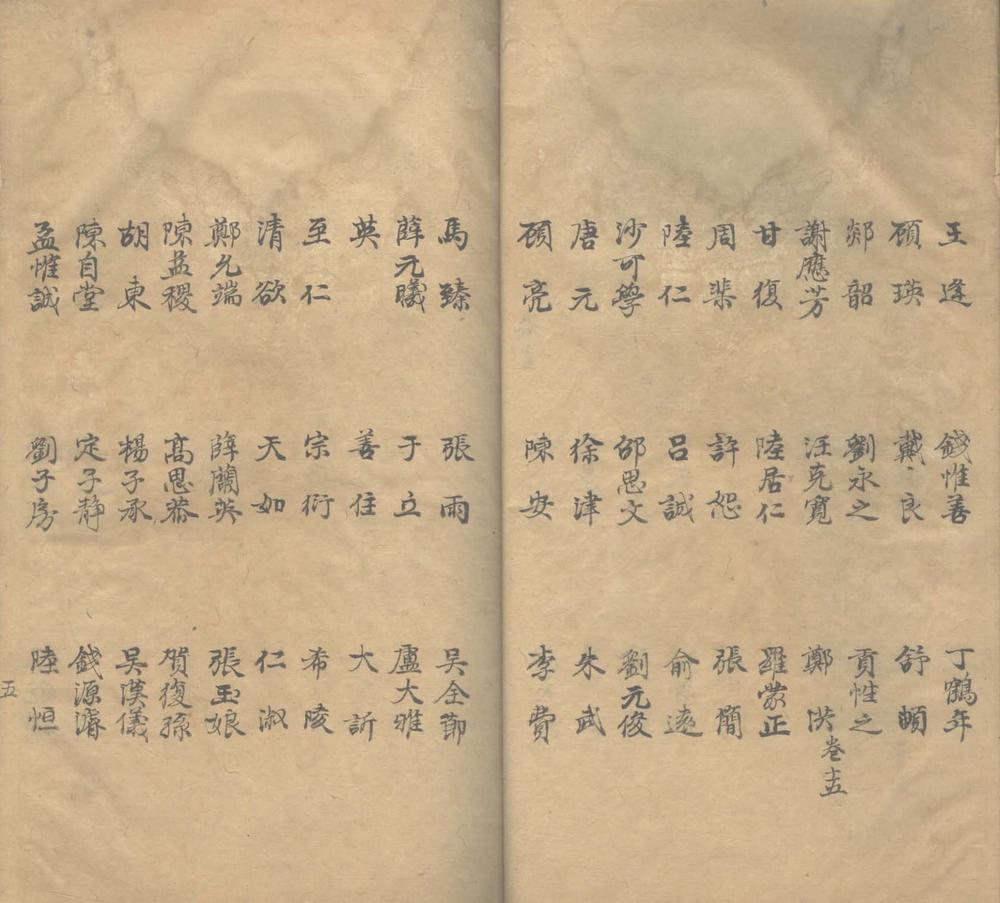 王逢 錢惟善 丁鶴年
頋瑛 戴良 舒頔
郯韶 劉永之 貢性之
謝應芳 汪克寬 鄭洪 卷十五
甘復 陸居仁 羅蒙正
周棐 許恕 張簡
陸仁 呂誠 俞遠
沙可學 邵思文 劉元俊
唐元 徐津 朱武
頋亮 陳安 李費
馬臻 張雨 吳全節
薛元曦 于立 盧大雅
英 善住 大訢
至仁 宗衍 希陵
清欲 天如 仁淑
鄭允端 薛蘭英 張玉娘
陳益稷 高思恭 賀復孫
胡東 楊子承 吳漢儀
陳自堂 定子静 錢源濬
孟惟誠 劉子房 陸恒
五